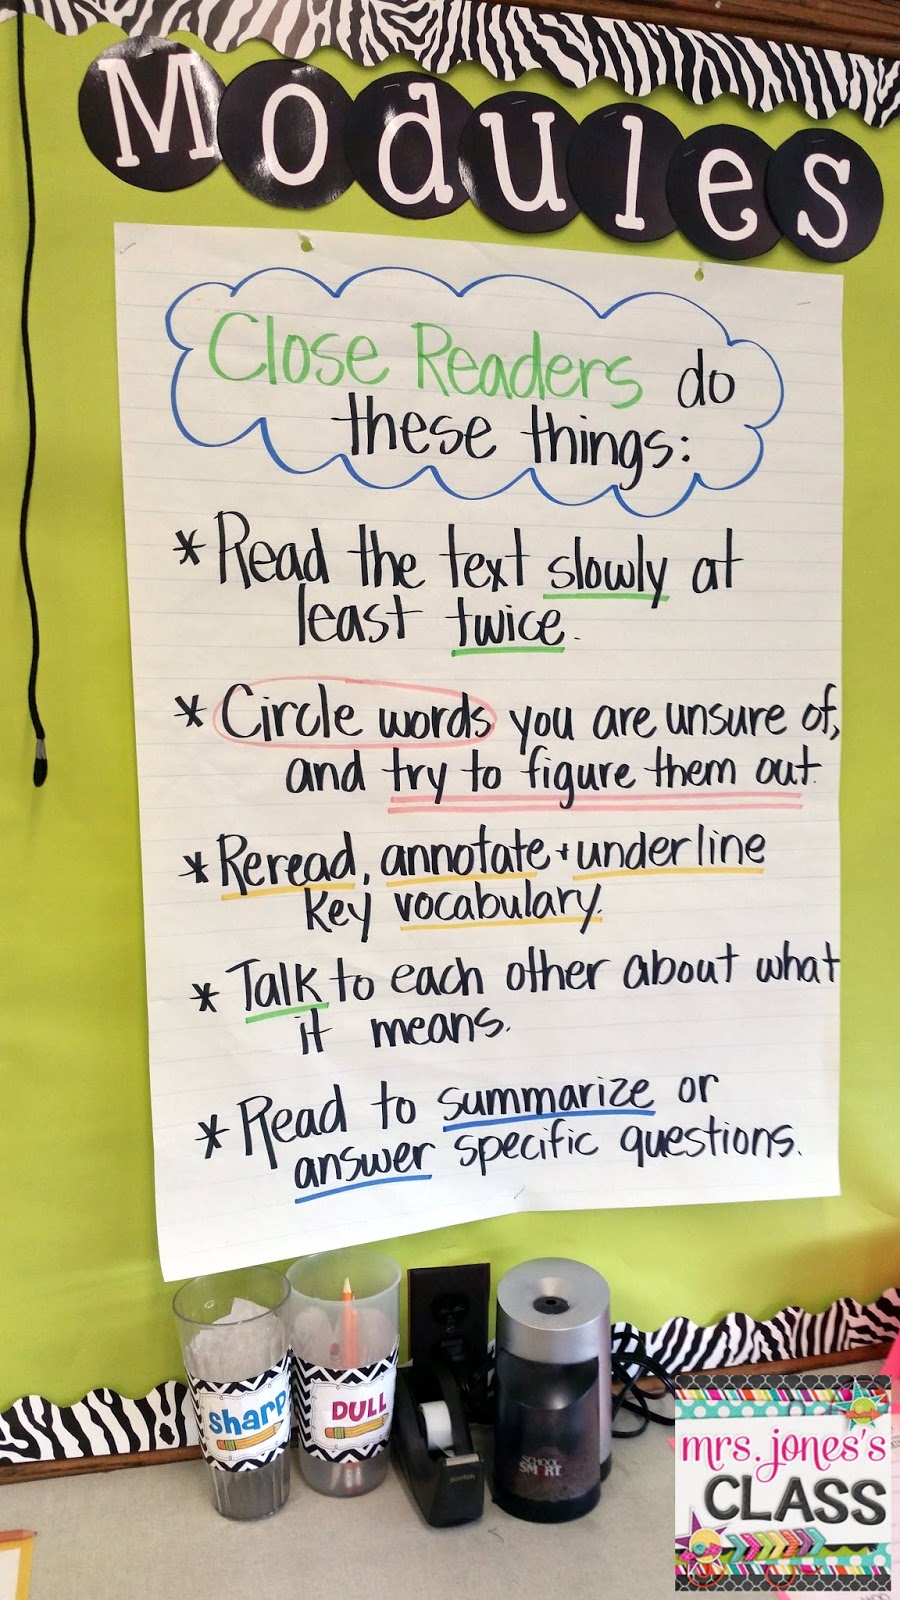 Modules
Close Readers do
these things:
* Read the text slowly at
least twice.
* Circle words you are unsure of,
and try to figure them out.
* Reread, annotate + underline
key vocabulary.
* Talk to each other about what
it means.
* Read to summarize or
answer specific questions.
Sharp
DULL
Scotch
SCHOOL
SMART
mrs. jones's
CLASS